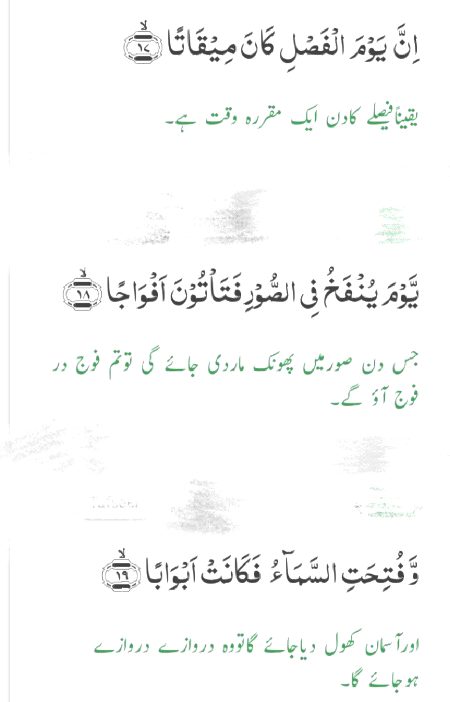 اِنَّ يَوْمَ الْفَصْلِ كَانَ مِيْقَاتًا ۙ﴿۱۷﴾
یقیناًفیصلے کادن ایک مقررہ وقت ہے۔
يَّوْمَ يُنْفَخُ فِي الصُّوْرِ فَتَاْتُوْنَ اَفْوَاجًا ۙ﴿۱۸﴾
جس دن صورمیں پھونک ماردی جائے گی توتم فوج در
فوج آؤ گے۔
وَّ فُتِحَتِ السَّمَآءُ فَكَانَتْ اَبْوَابًا ۙ﴿۱۹﴾
اورآسمان کھول دیاجائے گاتووہ دروازے دروازے
ہوجائے گا۔